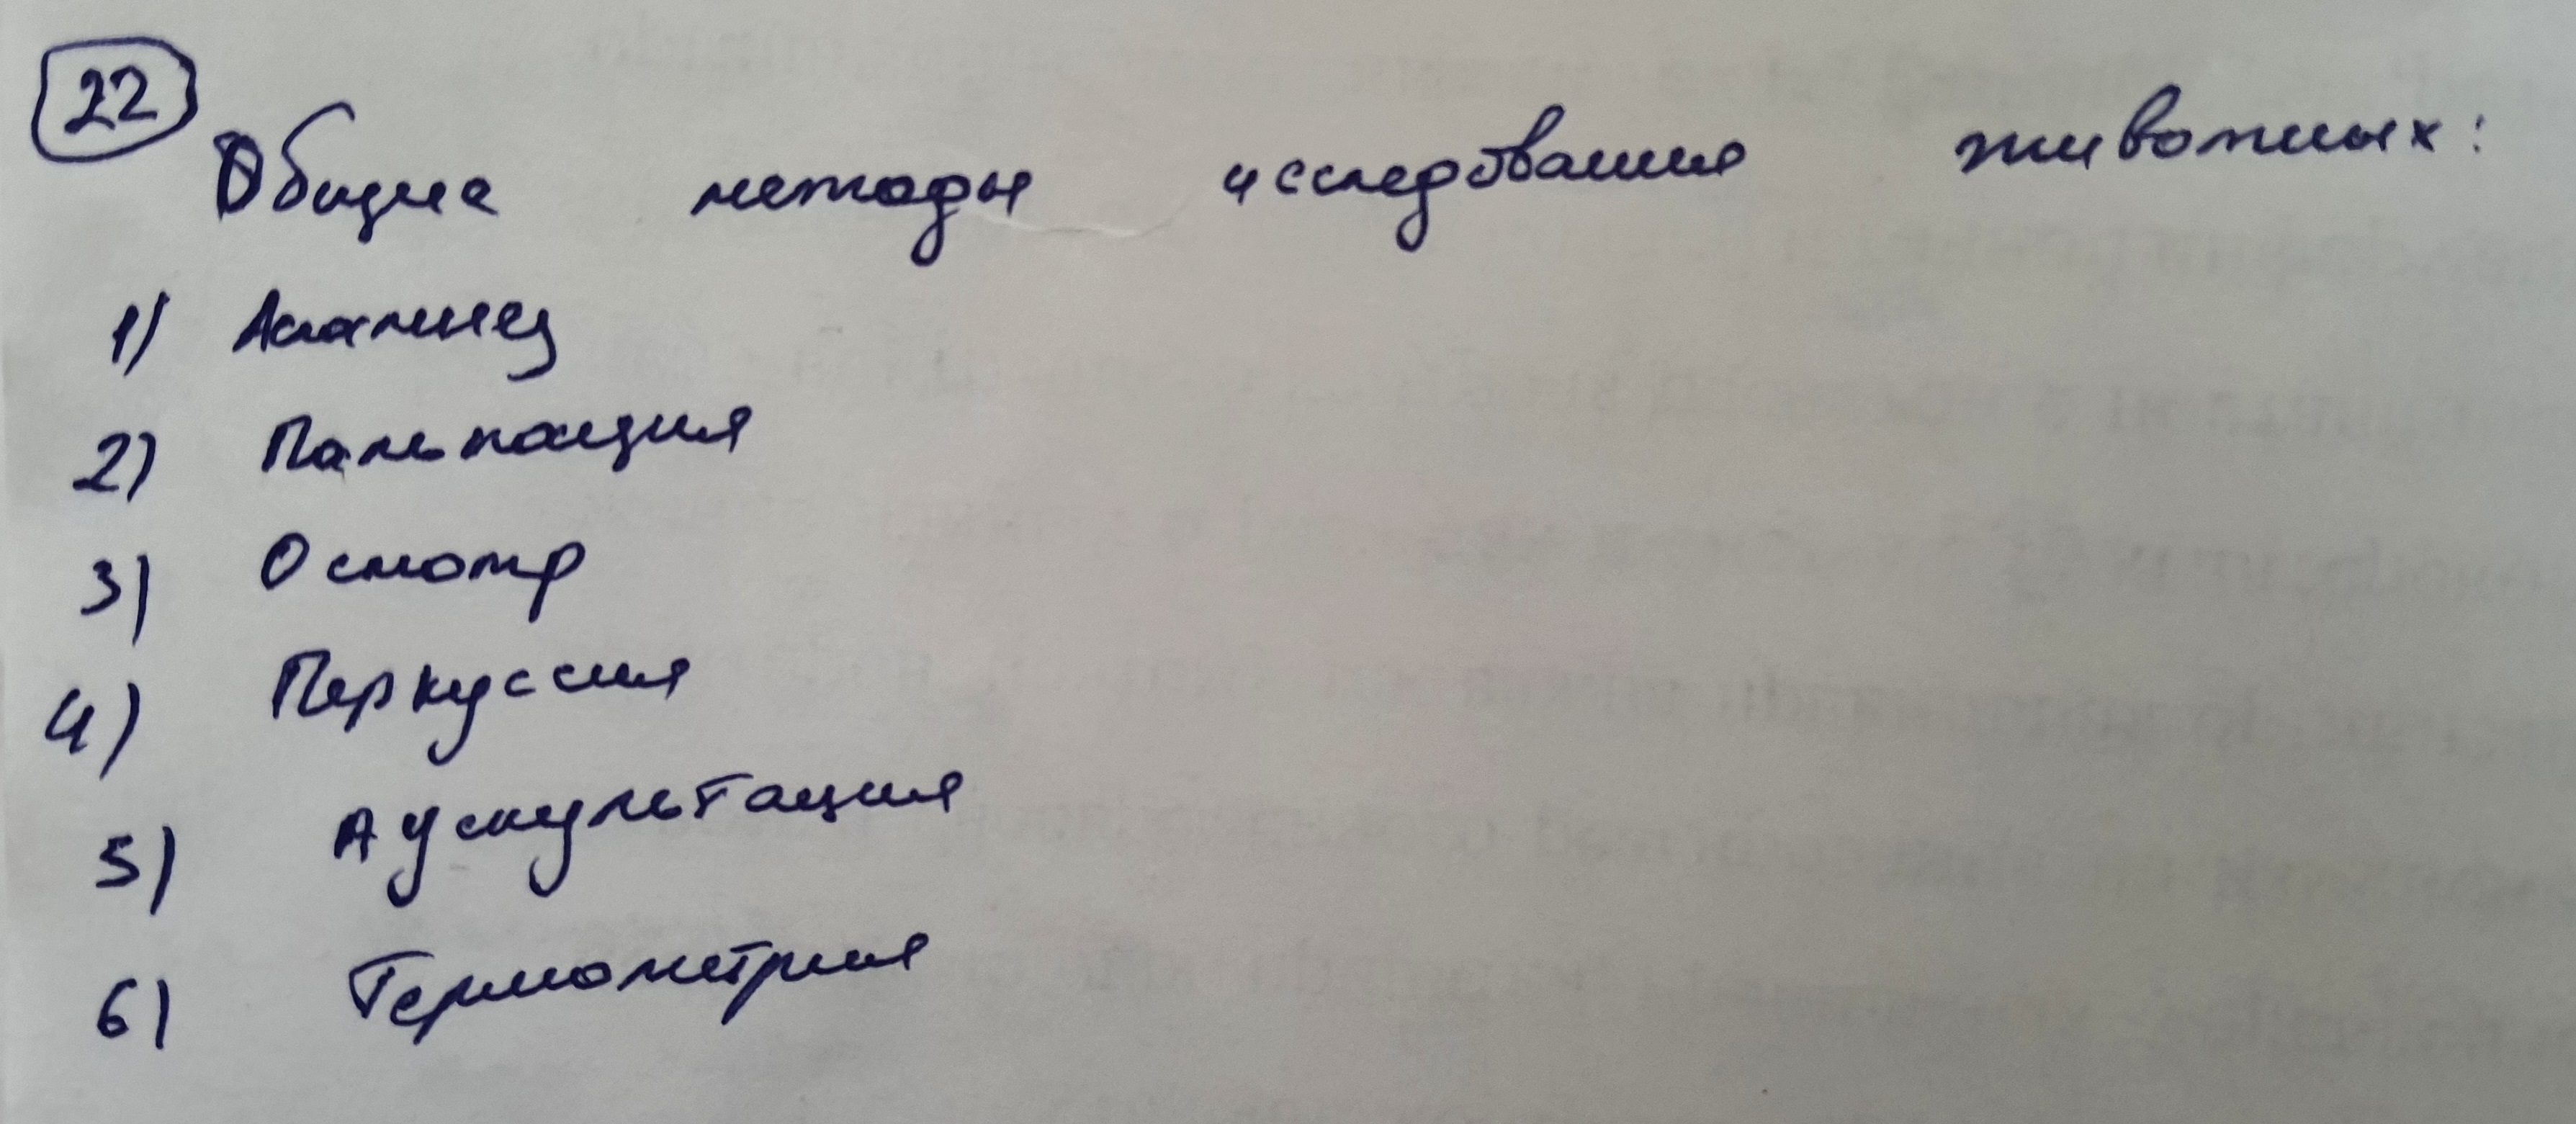 22
Общие методы исследования животных:
1) Анамнез
2) Пальпация
3) Осмотр
4) Перкуссия
5) Аускультация
6) Термометрия